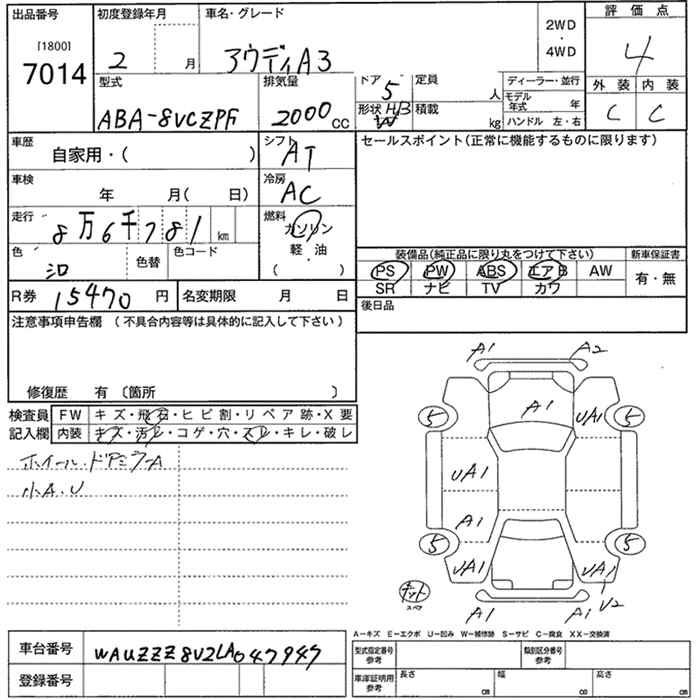 出品番号 初度登録年月 車名・グレード 評価点
[1800] 2WD
7014 2 月 アウディA3 ・ 4
4WD
外装 内装
C C
型式 排気量 ドア 定員 ディーラー・並行
5 人 モデル年式 年
ABA-8VCZPF 2000 CC 形状 H/B 積載 kg ハンドル 左・右
車歴 自家用・( ) シフト AT セールスポイント(正常に機能するものに限ります)
車検 年 月( 日) 冷房 AC
走行 8万6千781 km 燃料 ガソリン
色 色替 色コード 軽・油
( ・ )
装備品(純正品に限り丸をつけて下さい) 新車保証書
PS PW ABS エアB AW 有・無
SR ナビ TV カワ
R券 15470 円 名変期限 月 日 後日品
注意事項申告欄 (不具合内容等は具体的に記入して下さい)
修復歴 有 〔箇所 〕
検査員 FW キズ・飛石・ヒビ割・リペア跡・X要
記入欄 内装 キズ・汚レ・コゲ・穴・スレ・キレ・破レ
ホイール・ドアミラーA
小A.U
A1 A2
A1
5 UA1 5
UA1
A1
5 5
UA1 UA1
U2
スペア
A1 A1
A-キズ E-エクボ U-凹み W-補修跡 S-サビ C-腐食 XX-交換済
車台番号 WAUZZZ8V2LA047947
型式指定番号 参考 類別区分番号 参考
登録番号
車庫証明用 参考 長さ cm 幅 cm 高さ cm